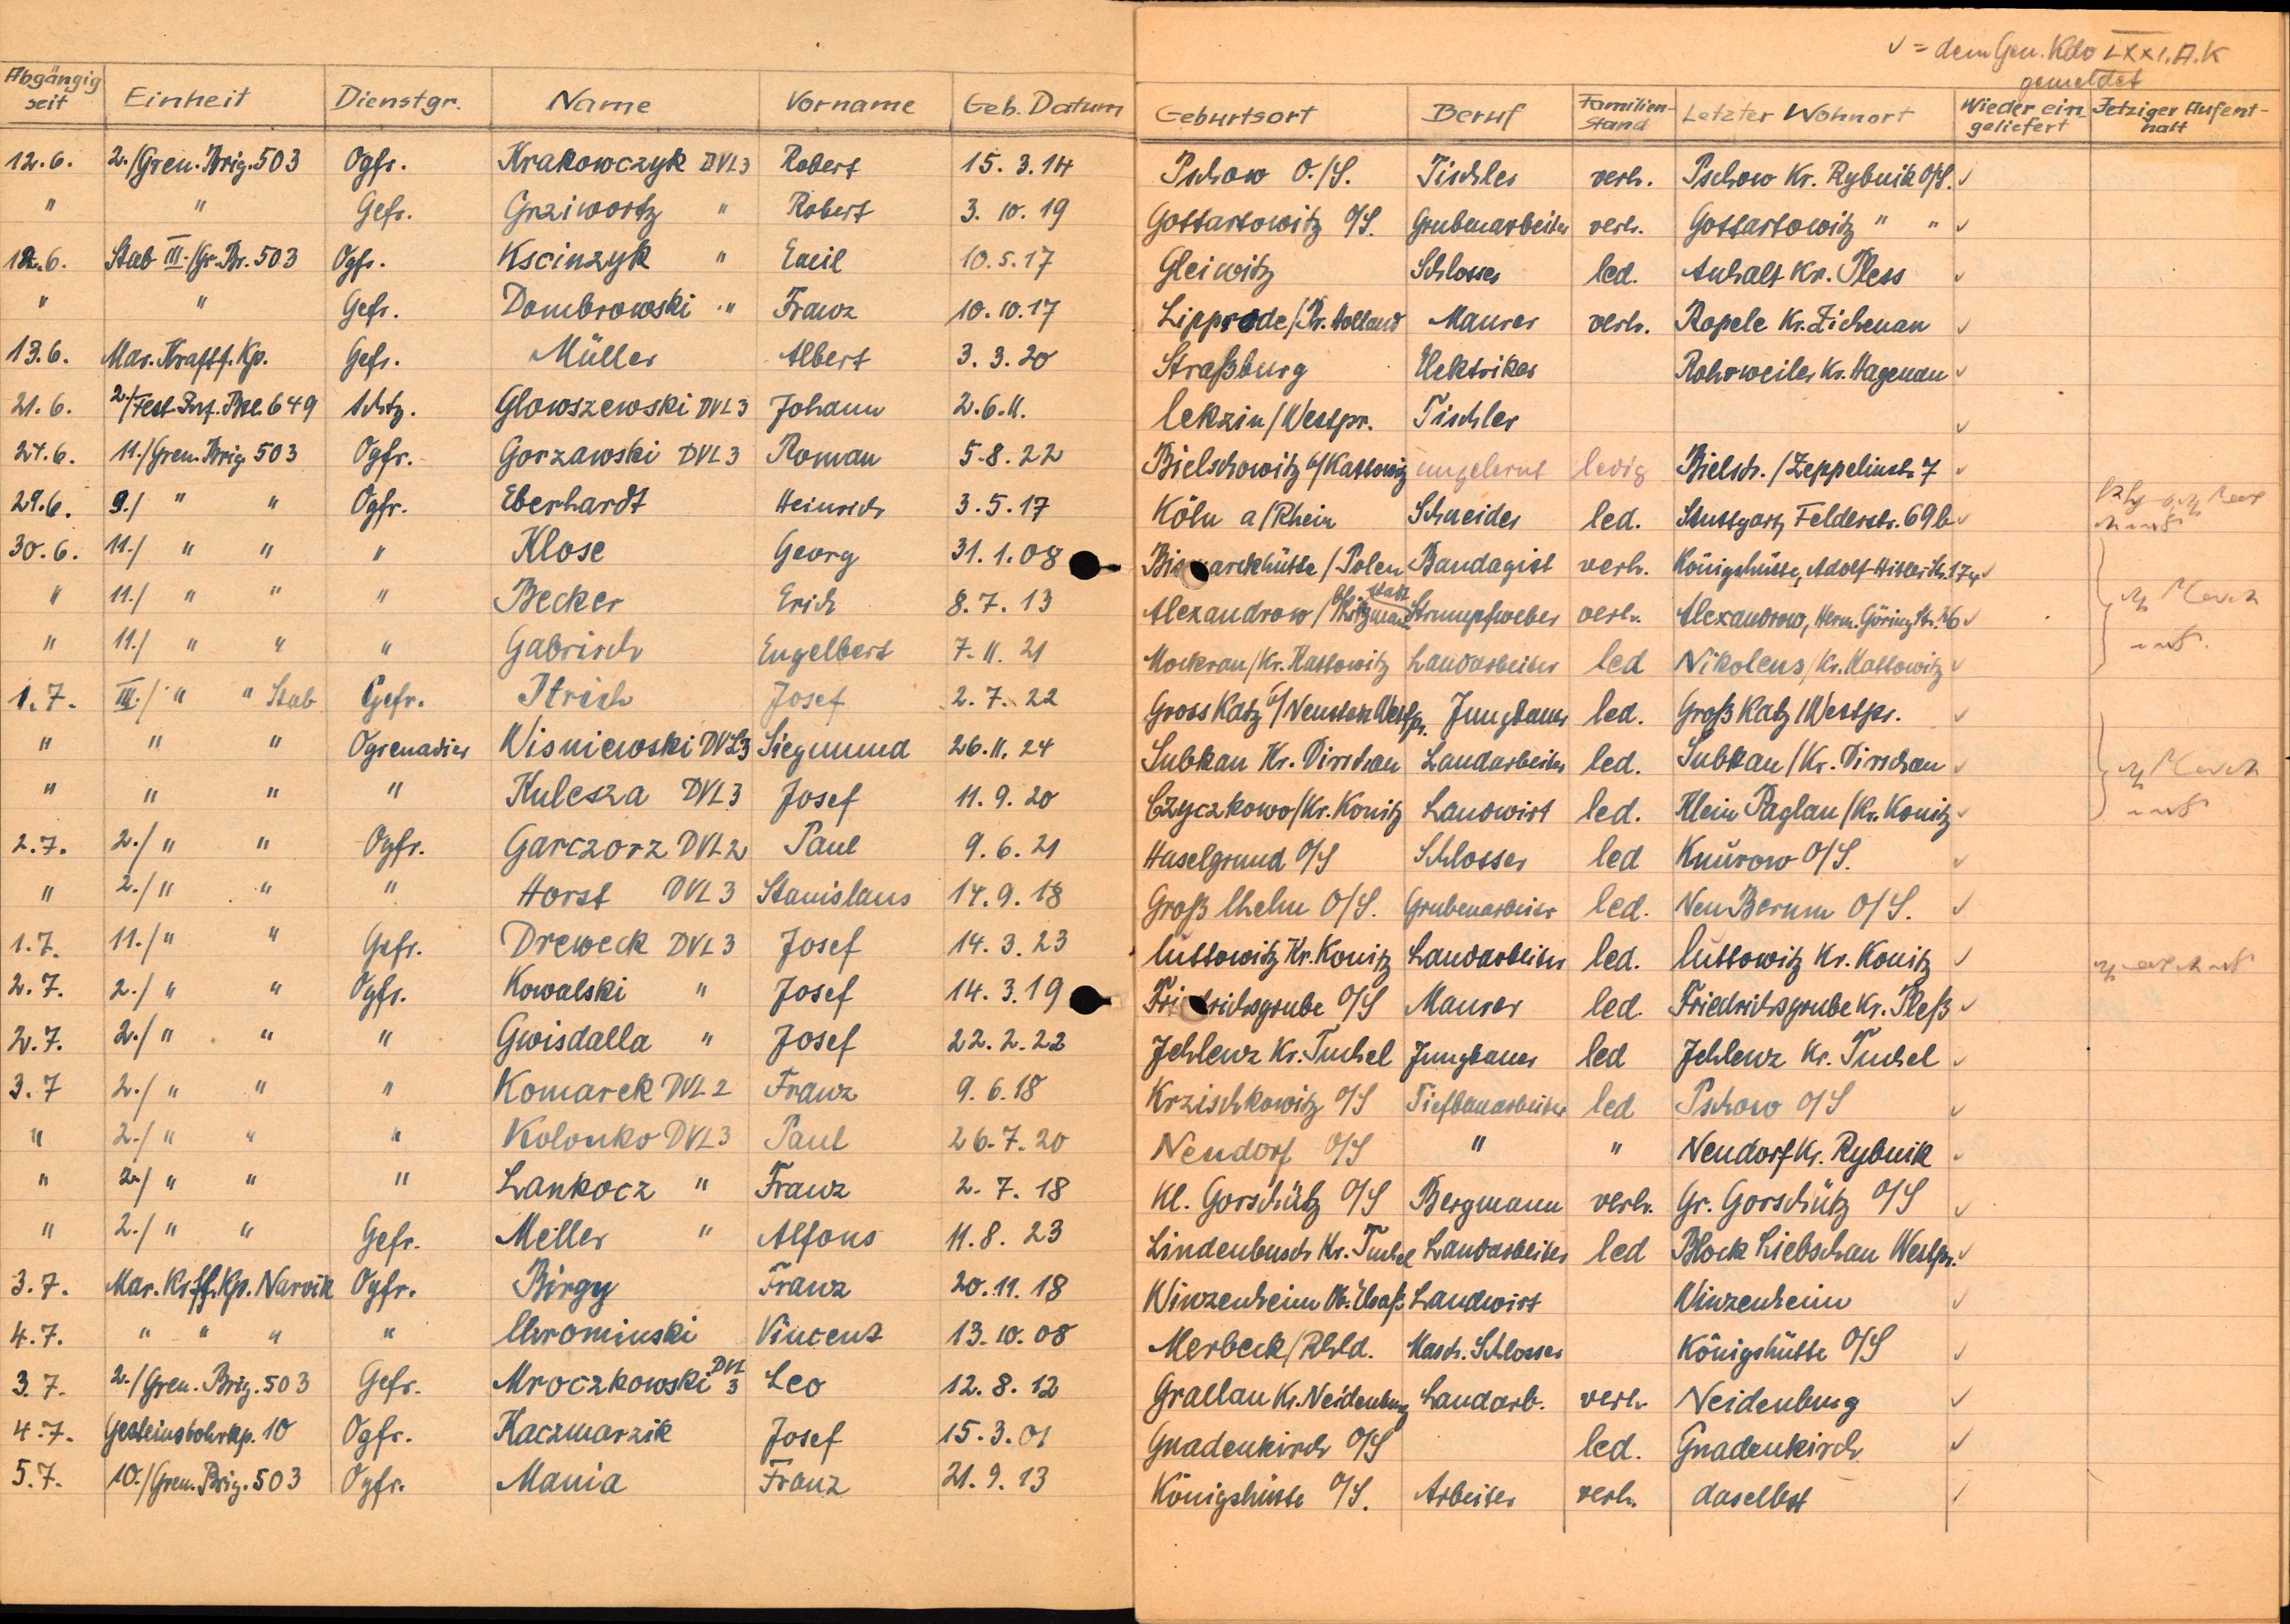 ✓ = dem Gen. Kdo LXXI. A.K
gemeldet
Abgängig seit Einheit Dienstgr. Name Vorname Geb. Datum Geburtsort Beruf Familien-Stand Letzter Wohnort Wieder ein-geliefert Jetziger Aufent-halt
12.6. 2./Gren. Brig. 503 Ogfr. Krakowczyk DVL3 Robert 15.3.14 Pschow O./S. Tischler verh. Pschow Kr. Rybnik O/S. ✓
" " Gefr. Grziwortz " Robert 3.10.19 Gottartowitz O/S. Grubenarbeiter verh. Gottartowitz " " ✓
12.6. Stab III./Gr. Br. 503 Ogfr. Kscinzyk " Emil 10.5.17 Gleiwitz Schlosser led. Anhalt Kr. Pless ✓
" " Gefr. Dombrowski " Franz 10.10.17 Lipprode/Pr. Holland Maurer verh. Ropele Kr. Zichenau ✓
13.6. Mar. Kraftf. Kp. Gefr. Müller Albert 3.3.20 Straßburg Elektriker Rohrweiler Kr. Hagenau ✓
21.6. 2/Fest. Inf. Btl. 649 Schtz. Glowszewski DVL3 Johann 2.6.11. Lekzin/Westpr. Tischler ✓
27.6. 11./Gren. Brig 503 Ogfr. Gorzawski DVL3 Roman 5.8.22 Bielschowitz b/Kattowitz ungelernt ledig Bielsch./Zeppelinstr. 7 ✓
29.6. 9./ " " Ogfr. Eberhardt Heinrich 3.5.17 Köln a/Rhein Schneider led. Stuttgart, Felderstr. 69b ✓
30.6. 11./ " " " Klose Georg 31.1.08 Bismarckhütte/Polen Bandagist verh. Königshütte, Adolf Hitler Str. 174 ✓
" 11./ " " " Becker Erich 8.7.13 Alexandrow/Litzmannstadt Strumpfweber verh. Alexandrow, Herm. Göring Str. 26 ✓
" 11./ " " " Gabrisch Engelbert 7.11.21 Mockrau/Kr. Kattowitz Landarbeiter led Nikoleus/Kr. Kattowitz ✓
1.7. III./ " " Stab Gefr. Itrich Josef 2.7.22 Gross Katz b/Neustadt Westpr. Jungbauer led. Groß Katz/Westpr. ✓
" " " Ogrenadier Wisniewski DVL3 Siegmund 26.11.24 Subkau Kr. Dirschau Landarbeiter led. Subkau/Kr. Dirschau ✓
" " " " Kulesza DVL3 Josef 11.9.20 Czyczkowo/Kr. Konitz Landwirt led. Klein Paglau/Kr. Konitz ✓
2.7. 2./ " " Ogfr. Garczorz DVL2 Paul 9.6.21 Haselgrund O/S Schlosser led Knurow O/S. ✓
" 2./ " " " Horst DVL3 Stanislaus 14.9.18 Groß Chelm O/S. Grubenarbeiter led. Neu Berum O/S. ✓
1.7. 11./ " " Gefr. Dreweck DVL3 Josef 14.3.23 Luttowitz Kr. Konitz Landarbeiter led. Luttowitz Kr. Konitz ✓
2.7. 2./ " " Ogfr. Kowalski " Josef 14.3.19 Friedrichsgrube O/S Maurer led. Friedrichsgrube Kr. Pleß ✓
2.7. 2./ " " " Gwisdalla " Josef 22.2.22 Jehlenz Kr. Tuchel Jungbauer led Jehlenz Kr. Tuchel ✓
3.7 2./ " " " Komarek DVL2 Franz 9.6.18 Krzischkowitz O/S Tiefbauarbeiter led Pschow O/S ✓
" 2./ " " " Kolonko DVL3 Paul 26.7.20 Neudorf O/S " " Neudorf Kr. Rybnik ✓
" 2./ " " " Lankocz " Franz 2.7.18 Kl. Gorschütz O/S Bergmann verh. Gr. Gorschütz O/S ✓
" 2./ " " Gefr. Meller " Alfons 11.8.23 Lindenbusch Kr. Tuchel Landarbeiter led Block Liebschau Westpr. ✓
3.7. Mar. Krff. Kp. Narvik Ogfr. Birgy Franz 20.11.18 Winzenheim Ob. Elsaß Landwirt Winzenheim ✓
4.7. " " " " Chrominski Vincent 13.10.08 Merbeck/Rhld. Masch. Schlosser Königshütte O/S ✓
3.7. 2./Gren. Brig. 503 Gefr. Mroczkowski DVL 3 Leo 12.8.12 Grallau Kr. Neidenburg Landarb. verh. Neidenburg ✓
4.7. Gesteinsbohrkp. 10 Ogfr. Kaczmarzik Josef 15.3.01 Gnadenkirch O/S led. Gnadenkirch ✓
5.7. 10./Gren. Brig. 503 Ogfr. Mania Franz 21.9.13 Königshütte O/S. Arbeiter verh. daselbst ✓